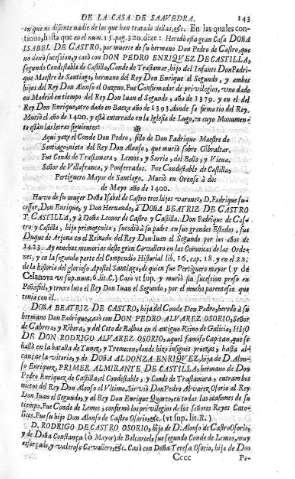 DE LA CASA DE SAAVEDRA. 243
en que no disiente nadie de los que han tratado dellas, &c. En las quales con-
tinuò, hasta que en el num. 15. pag. 320. dize: Heredò esta gran Casa DOÑA
ISABEL DE CASTRO, por muerte de su hermano Don Pedro de Castro, que
no dexò sucession, y casò con DON PEDRO ENRIQVEZ DE CASTILLA,
segundo Condestable de Castilla, Conde de Trastamar, hijo del Infante Don Padri-
que Maestro de Santiago, hermano del Rey Don Enrique el Segundo, y ambos
hijos del Rey Don Alonso el Onzeno. Fue Confirmador de privilegios, uno dado
en Madrid en tiempo del Rey Don Juan el Segundo, año de 1379. y en el del
Rey Don Enrique, otro dado en Burgos año de 1397 donde se firma tio del Rey.
Muriò el año de 1400. y està enterrado en la Iglesia de Lugo, en cuyo Monumen-
to estàn las letras siguientes:
Aqui yaze el Conde Don Pedro, fijo de Don Padrique Maestre de
Santiago, nieto del Rey Don Alonso, que murió sobre Gibraltar.
Fue Conde de Trastamara, Lemos, y Sarria, del Bollo, y Viana.
Señor de Villafranca, y Ponferrada. Fue Condestable de Castilla,
Pertiguero Mayor de Santiago. Murió en Orense à dos
de Mayo año de 1400.
Huvo de su muger Doña Isabel de Castro tres hijos varones, D. Fadrique su
cessor, Don Enrique, y Don Hernando, à DOÑA BEATRIZ DE CASTRO
Y CASTILLA, y à Doña Leonor de Castro y Castilla. Don Fadrique de Cas-
tro y Castilla, hijo primogenito, sucediò à su padre en sus grandes Estados, fue
Duque de Arjona en el Reinado del Rey Don Iuan el Segundo por los años de
1423. ay muchas memorias deste gran Cavallero en las Coronicas de las Orde-
nes, y en la segunda parte del Compendio Historial lib. 16. cap. 18. y en el 22.
de la historia del glorioso Apostol Santiago, de quien fue Pertiguero mayor (y de
tenia con èl.
DOÑA BEATRIZ DE CASTRO, hija del Conde Don Pedro, heredò à su
hermano Don Fadrique, casò con DON PEDRO ALVAREZ OSORIO, Señor
de Cabrera, y Ribera, y del Coto de Balboa en el antiguo Reino de Galicia, HIJO
DE DON RODRIGO ALVAREZ OSORIO, aquel famoso Capitan, que se
cançar la vitoria, y de DOÑA ALDONZA ENRIQVEZ, hija de D. Alonso
Enriquez, PRIMER ALMIRANTE DE CASTILLA, hermano de Don
Pedro Enriquez, de Castilla, el Condestable, y Conde de Trastamara, entrambos
nietos del Rey Don Alonso el Vltimo. Sirviò Don Pedro Alvarez Osorio al Rey
Don Iuan el Segundo, y al Rey Don Enrique Quarto, en todas las ocasiones de su
tiempo. Fue Conde de Lemos, confirmò los privilegios de los señores Reyes Catho-
licos. Fue su hijo Don Alonso de Castro Osorio, &c. (ut sup. lit. R.)
D. RODRIGO DE CASTRO OSORIO, hijo de D. Alonso de Castro Osorio,
y de Doña Constança (ò Mayor) de Balcarcel, fue segundo Conde de Lemos, muy
esforçado, y valeroso Cavallero, &c. Casò con Doña Teresa Osorio, hija de Don
Cccc Pe-